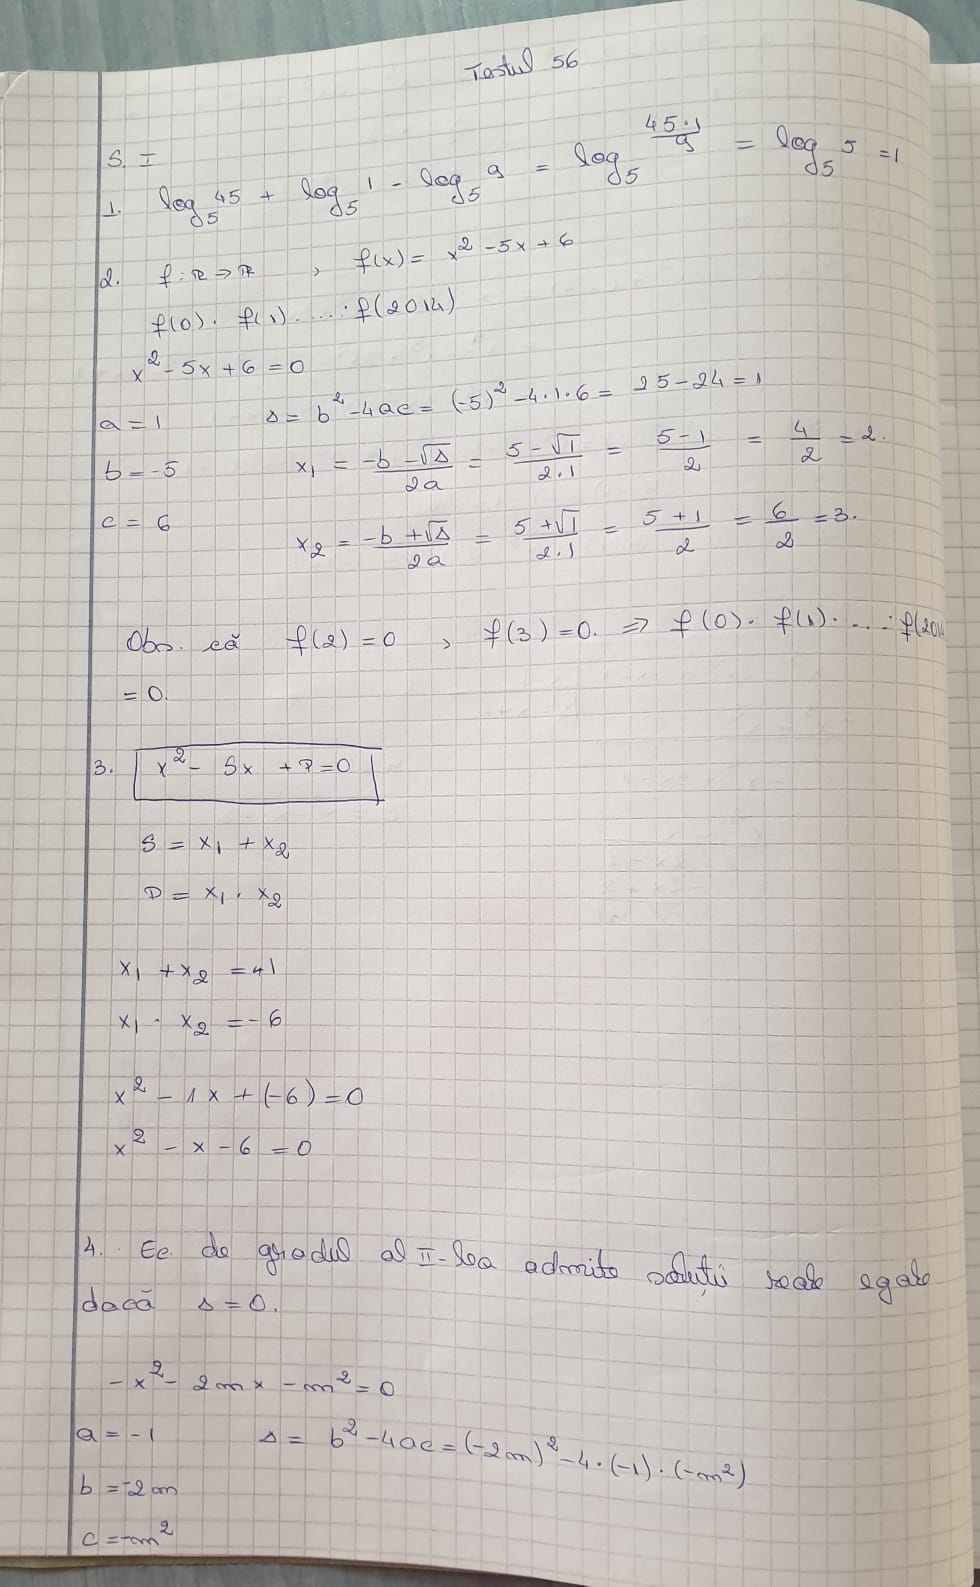 Testul 56
S. I
1. log₅ 45 + log₅ 1 - log₅ 9 = log₅ (45·1)/9 = log₅ 5 = 1
2. f: R → R , f(x) = x² - 5x + 6
f(0) · f(1) · ... · f(2014)
x² - 5x + 6 = 0
a = 1 Δ = b² - 4ac = (-5)² - 4·1·6 = 25 - 24 = 1
b = -5 x₁ = (-b - √Δ)/2a = (5 - √1)/2·1 = (5 - 1)/2 = 4/2 = 2.
c = 6 x₂ = (-b + √Δ)/2a = (5 + √1)/2·1 = (5 + 1)/2 = 6/2 = 3.
Obs. că f(2) = 0 , f(3) = 0. ⇒ f(0) · f(1) · ... · f(2014
= 0.
3. x² - Sx + P = 0
S = x₁ + x₂
P = x₁ · x₂
x₁ + x₂ = 1
x₁ · x₂ = -6
x² - 1x + (-6) = 0
x² - x - 6 = 0
4. Ec. de gradul al II-lea admite soluții reale egale
dacă Δ = 0.
-x² - 2mx - m² = 0
a = -1 Δ = b² - 4ac = (-2m)² - 4·(-1)·(-m²)
b = -2m
c = -m²